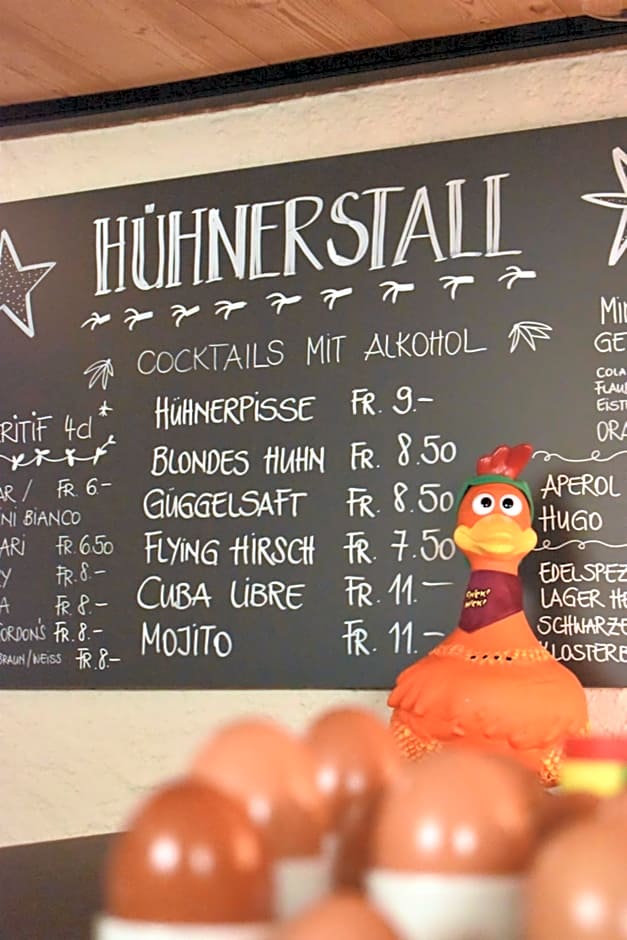 HÜHNERSTALL
COCKTAILS MIT ALKOHOL
HÜHNERPISSE FR. 9.-
BLONDES HUHN FR. 8.50
GÜGGELSAFT FR. 8.50
FLYING HIRSCH FR. 7.50
CUBA LIBRE FR. 11.-
MOJITO FR. 11.-
RITIF 4cl
AR / FR. 6.-
NI BIANCO
ARI FR. 6.50
Y FR. 8.-
A FR. 8.-
GORDON'S FR. 8.-
BRAUN/WEISS FR. 8.-
MIN
GE
COLA
FLAU
EIST
ORA
APEROL
HUGO
EDELSPEZ
LAGER HE
SCHWARZE
KLOSTERB